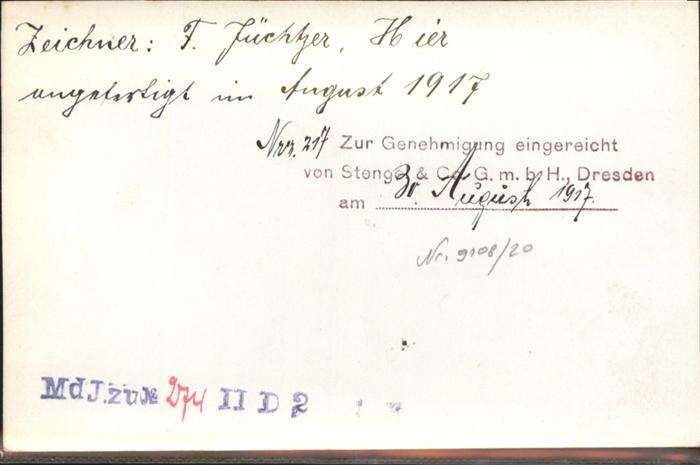 Zeichner: F. Jüchtzer, Hier
angefertigt im August 1917
Nrr. 217 Zur Genehmigung eingereicht
von Stengel & Co. G. m. b. H., Dresden
am 30. August 1917.
Nr. 9108/20
MdJ. zu № 274 II D 2